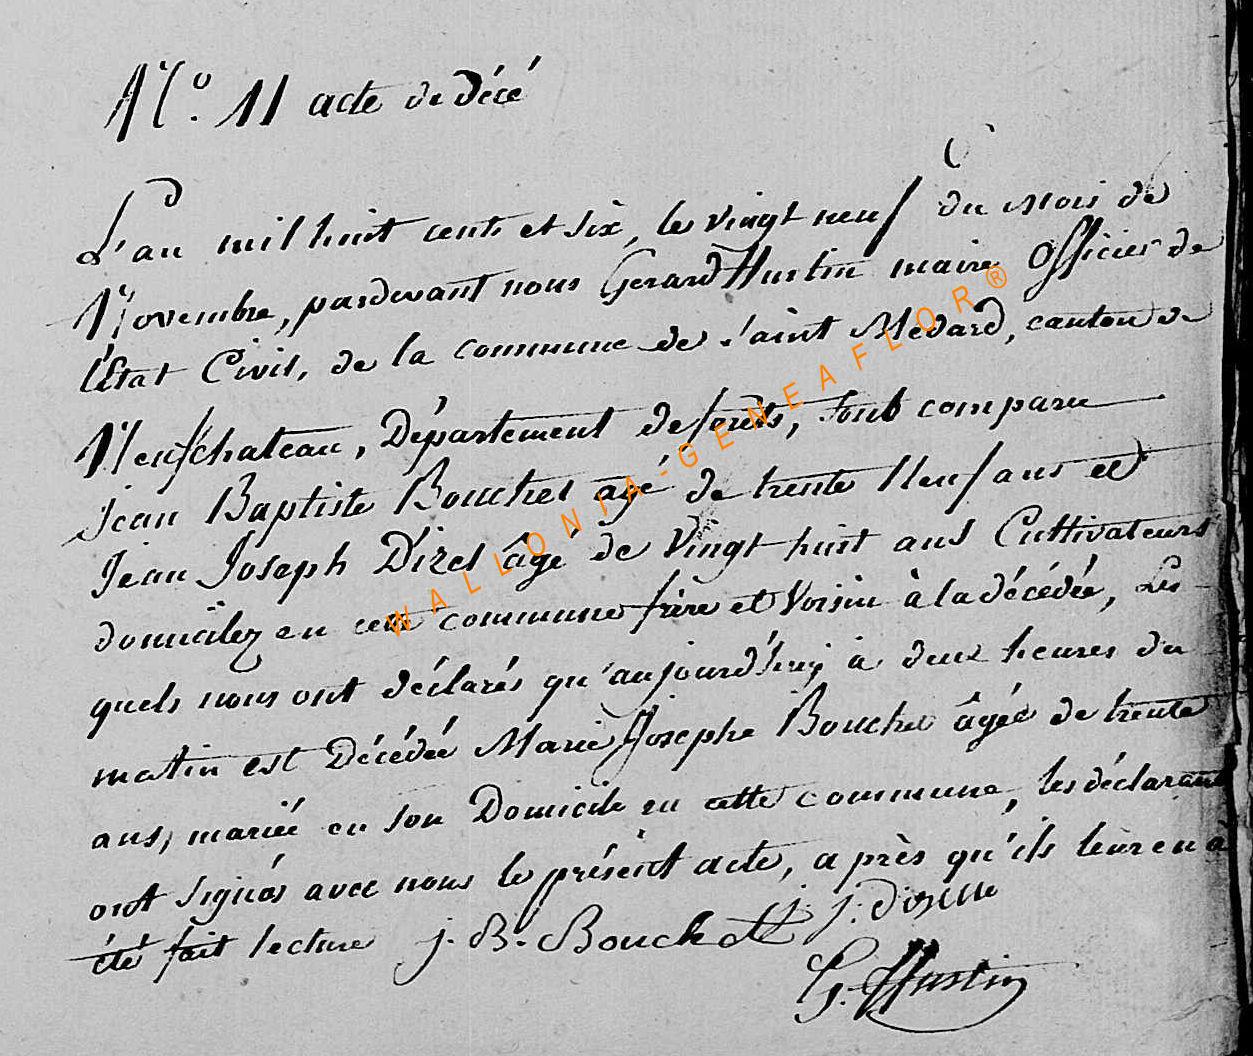 N.º 11 acte de décé
L'an mil huit cents et six, le vingt neuf du Mois de
Novembre, pardevant nous Gerard Hustin maire Officier de
l'État Civil, de la commune de Saint Medard, canton de
Neufchateau, Département de forêts, sont comparu
jean Baptiste Bouchet agé de trente Neuf ans et
Jean Joseph Dizel âgé de Vingt huit ans Cultivateurs
domicilez en cette commune frère et Voisin à la décédée, Les
quels nous ont déclarés qu'aujourd'huy à deux heures du
matin est Décédée Marie Josephe Bouchet âgée de trente
ans, mariée en son Domicile en cette commune, les déclarant
ont signés avec nous le présent acte, après qu'ils leur en à
été fait lecture j. B. Bouchet j. j. dizelle
G. Hustin
WALLONIA-GENEAFLOR®